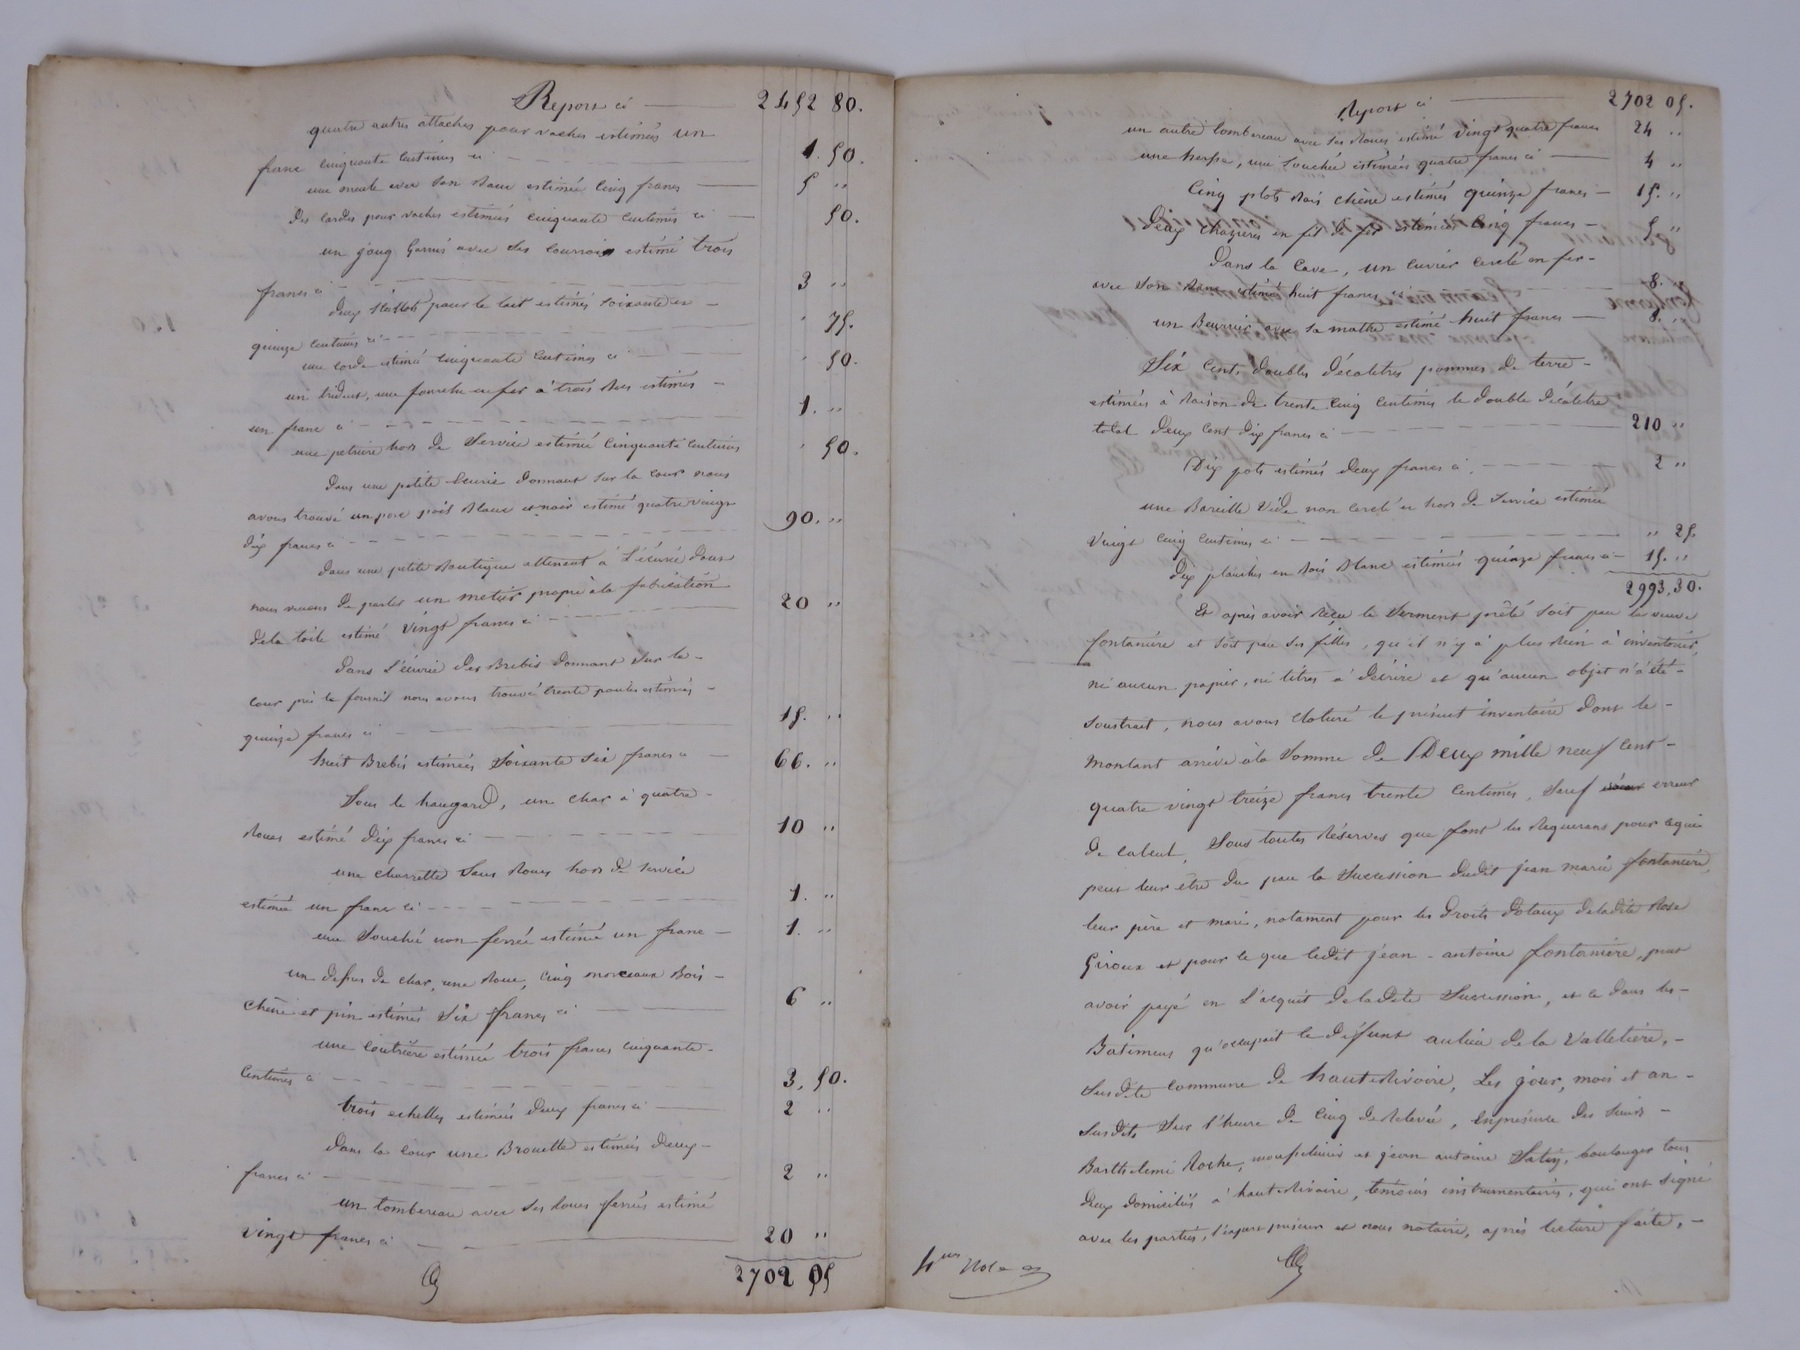 Report ci 2452 80.
quatre autres attaches pour vaches estimées un
franc cinquante centimes ci 1. 50.
une meule avec son aue estimée cinq francs 5 "
des cordes pour vaches estimées cinquante centimes ci 50.
un joug garni avec des courroies estimé trois
francs ci 3 "
deux pour le lait estimés soixante et
quinze centimes ci " 75.
une corde estimée cinquante centimes ci " 50.
un trident, une fourche en fer à trois estimés
un franc ci 1. "
une petrière hors de service estimée cinquante centimes " 50.
Dans une petite écurie donnant sur la cour nous
avons trouvé un porc poil blanc et noir estimé quatre vingt
dix francs ci 90. "
Dans une petite boutique attenant à l'écurie dont
nous venons de parler un metier propre à la fabrication
de la toile estimé vingt francs ci 20 "
dans l'écurie des Brebis donnant sur la
cour près le fournil nous avons trouvé trente poules estimées
quinze francs ci 15. "
huit Brebis estimées soixante six francs ci 66. "
Sous le hangard, un char à quatre
roues estimé dix francs ci 10 "
une charrette sans roues hors de service
estimée un franc ci 1. "
une non ferrée estimée un franc 1. "
un de char, une roue, cinq morceaux Bois
chêne et pin estimés six francs ci 6 "
une estimée trois francs cinquante
centimes ci 3, 50.
trois echelles estimées deux francs ci 2 "
dans la cour une Brouette estimée deux
francs ci 2 "
un tombereau avec ses roues ferrées estimé
vingt francs ci 20 "
2702 05
Report ci 2702 05.
un autre tombereau avec ses roues estimé vingt quatre francs 24 "
une herse, une estimées quatre francs ci 4 "
Cinq plots bois chêne estimés quinze francs 15. "
Deux en fil de fer estimées cinq francs 5 "
Dans la cave, un cuvier cerclé en fer
avec son estimé huit francs 8. "
un Beurrier avec sa estimé huit francs 8. "
Six cents doubles décalitres pommes de terre
estimées à raison de trente cinq centimes le double décalitre
total deux cent dix francs ci 210 "
Dix pots estimés deux francs ci 2 "
une Bareille vide non cerclé et hors de service estimée
vingt cinq centimes ci " 25.
dix planches en bois blanc estimées quinze francs ci 15. "
2993, 30.
Et après avoir reçu le serment prêté soit par la veuve
fontanière et soit par ses filles, qu'il n'y a plus rien à inventorier,
ni aucun papier, ni titres à décrire et qu'aucun objet n'a été
soustrait, nous avons cloturé le présent inventaire dont le
montant arrive à la somme de Deux mille neuf cent
quatre vingt treize francs trente centimes, sauf erreur
de calcul, sous toutes réserves que font les requerans pour ce qui
peut leur être du par la succession dudit jean marie fontanière,
leur père et mari, notament pour les droits dotaux de ladite Rose
Giroux et pour ce que ledit jean-antoine fontanière, peut
avoir payé en l'acquit de ladite succession, et ce dans les
Batimens qu'occupait le défunt au lieu de la Valletière,
susdite commune de hauterivoire, Les jour, mois et an
susdits sur l'heure de cinq de relevée, en présence des sieurs
Barthelemi Roche, et jean antoine boulanger tous
deux domiciliés à hauterivoire, témoins instrumentaires, qui ont signé
avec les parties, l'expert priseur et nous notaire, après lecture faite,